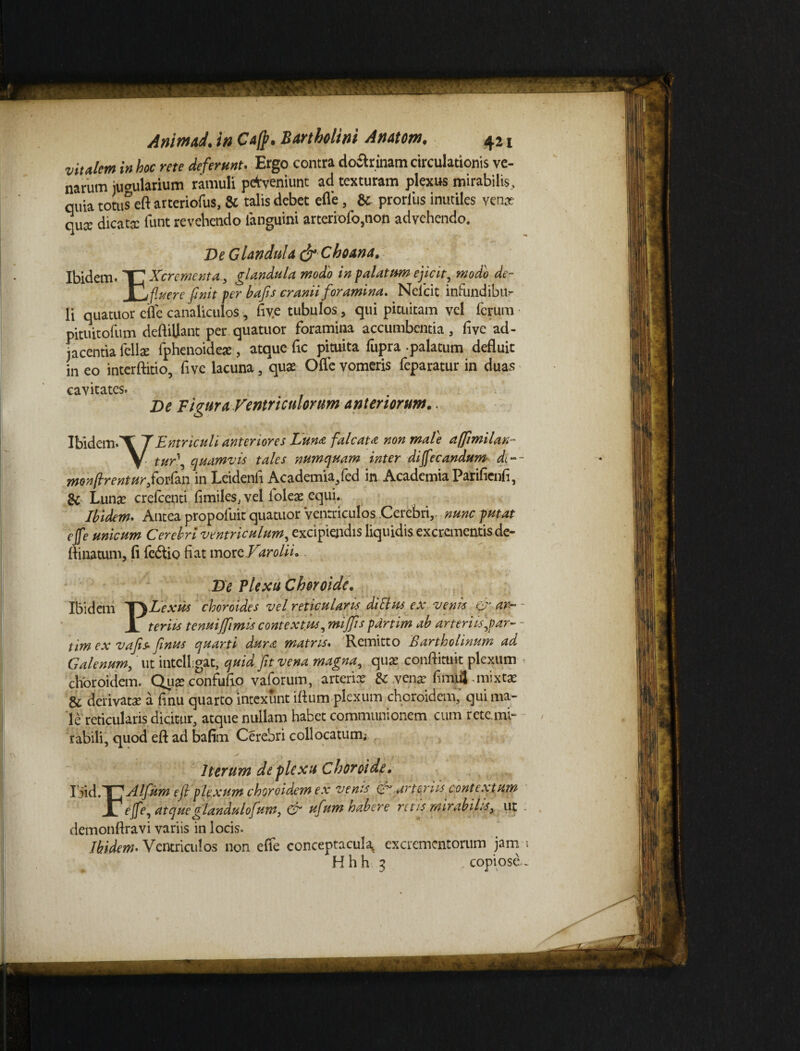 Animad. in Casp. Bartholini Anatom. 421
vitalem in hoc rete deferunt. Ergo contra doctrinam circulationis ve-
narum jugularium ramuli perveniunt ad texturam plexus mirabilis,
quia totus est arteriosus, & talis debet esse, & prorsus inutiles venæ
quæ dicatæ sunt revehendo sanguini arterioso, non advehendo.
De Glandula & Choana.
Ibidem. EXcrementa, glandula modo in palatum ejicit, modo de-
fluere sinit per basis cranii foramina. Nescit infundibu-
li quatuor esse canaliculos, sive tubulos, qui pituitam vel serum
pituitosum destillant per quatuor foramina accumbentia, sive ad-
jacentia sellæ sphenoideæ, atque sic pituita supra palatum defluit
in eo interstitio, sive lacuna, quæ Osse vomeris separatur in duas
cavitates.
De Figura Ventriculorum anteriorum.
Ibidem. VEntriculi anteriores Lunæ falcatæ non male assimilan-
tur, quamvis tales numquam inter dissecandum de-
monstrentur, forsan in Leidensi Academia, sed in Academia Parisiensi,
& Lunæ crescenti similes, vel soleæ equi.
Ibidem. Antea proposuit quatuor ventriculos Cerebri, nunc putat
esse unicum Cerebri ventriculum, excipiendis liquidis excrementis de-
stinatum, si sectio fiat more Varolii.
De Plexu Choroide.
Ibidem PLexus choroides vel reticularis dictus ex venis & ar-
teriis tenuissimis contextus, missis partim ab arteriis, par-
tim ex vasis sinus quarti duræ matris. Remitto Bartholinum ad
Galenum, ut intelligat, quid sit vena magna, quæ constituit plexum
choroidem. Quæ confusio vasorum, arteriæ & venæ simul mixtæ
& derivatæ à sinu quarto intexunt istum plexum choroidem, qui ma-
lè reticularis dicitur, atque nullam habet communionem cum rete mi-
rabili, quod est ad basim Cerebri collocatum.
Iterum de plexu Choroide.
Ibid. FAlsum est plexum choroidem ex venis & arteriis contextum
esse, atque glandulosum, & usum habere retis mirabilis, ut
demonstravi variis in locis.
Ibidem. Ventriculos non esse conceptacula excrementorum jam
Hhh 3 copiosè